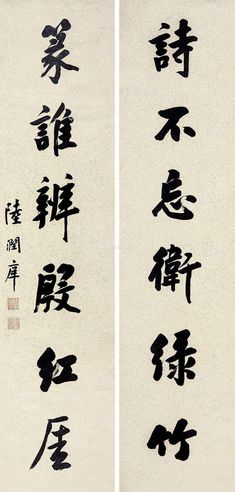 詩不忘衛緑竹
篆誰辨殷紅厓
陸潤庠